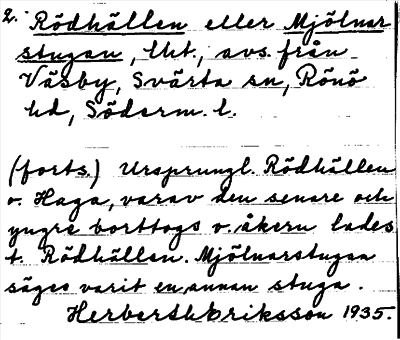 2. Rödhällen eller Mjölnar
stugan, lht., avs. från
Väsby, Svärta sn, Rönö
hd, Söderm. l.
(forts.) Ursprungl. Rödhällen
o. Haga, varav den senare och
yngre borttogs o. åkern lades
t. Rödhällen. Mjölnarstugan
säges varit en annan stuga.
Herbert Eriksson 1935.